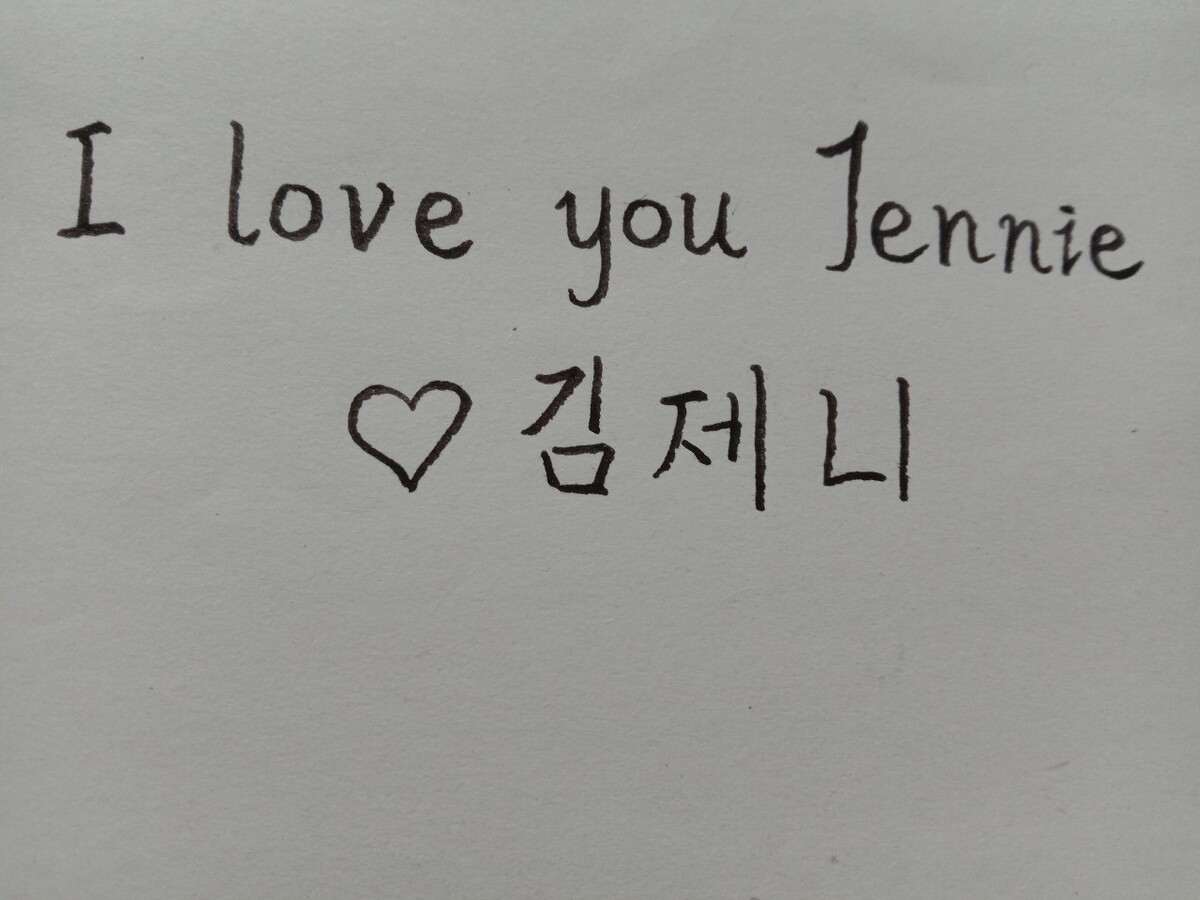 I love you Jennie
♡ 김제니